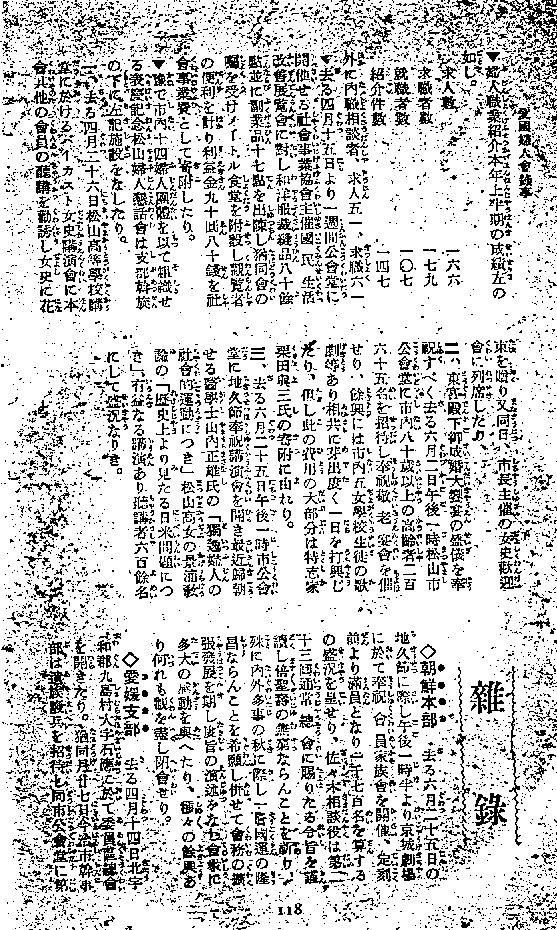 愛國婦人會錄事
▼婦人職業紹介本年上半期の成績左の
如し。
求人數　一六六
求職者數　一七九
就職者數　一〇七
紹介件數　一四七
外に內職相談者、求人五一、求職六一
▼去る四月十五日より一週間公會堂に
開催せる社會事業協會主催國民生活
改善展覽會に對し和洋服裁縫品八十餘
點並に副業品十七點を出陳し猶同會の
囑を受けメイトル食堂を附設し觀覽者
の便利を計り利益金九十圓八十錢を社
會事業費として寄附したり。
▼豫て市內十四婦人團體を以て組織せ
る表慶記念松山婦人懇話會は支部斡旋
の下に左記施設をなしたり。
一、去る四月二十六日松山高等學校講
堂に於けるパイカスト女史講演會に本
會其他の會員の聽講を勸誘し女史に花
束を贈り又同日、市長主催の女史歡迎
會に列席したり。
二、東宮殿下御成婚大饗宴の盛儀を奉
祝すべく去る六月二日午後一時松山市
公會堂に市內八十歲以上の高齡者二百
六十五名を招待し奉祝敬老宴會を催
せり、餘興には市內五女學校生徒の歌
劇等あり相共に芽出度く一日を打興じ
たり、但し此の費用の大部分は特志家
栗田與三氏の寄附に由れり。
三、去る六月二十五日午後一時市公會
堂に地久節奉祝講演會を開き最近歸朝
せる醫學士山內正雄氏の「獨逸婦人の
社會的運動につき」松山高女の景浦敎
諭の「歷史上より見たる日米問題につ
き」有益なる講演あり聽講者六百餘名
にして盛況なりき。
雜錄
◇朝鮮本部　去る六月二十五日の
地久節に際し午後一時半より京城劇場
に於て奉祝會員家族會を開催、定刻
前より滿員となり二千七百名を算する
の盛況を呈せり、佐々木相談役は第二
十三回通常總會に賜りたる令旨を謹
讀し倍聖壽の無窮ならんことを祈り、
殊に內外多事の秋に際し一層國運の隆
昌ならんことを希願し併せて會務の擴
張發展を期し度旨の演述をなし會衆に
多大の感動を與へたり、種々の餘興あ
り何れも觀を盡し閉會せり。
◇愛媛支部　去る四月十四日北宇
和郡九島村大字石應に於て委員區總會
を開きたり。猶同月廿七日今治市幹事
部は遺族癈兵を招待し同市公會堂に於
118